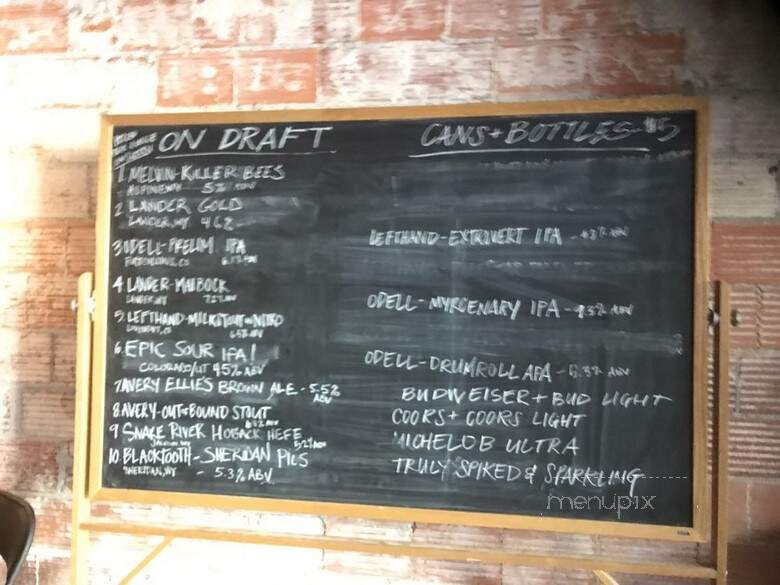 ON DRAFT
1 MELVIN-KILLER BEES
ALPINE, WY 5% ABV
2 LANDER GOLD
LANDER, WY 4.62
3 ODELL-PRELIM IPA
4 LANDER-MAIBOCK
LANDER, WY
5 LEFTHAND-MILKSTOUT-NITRO
6. EPIC SOUR IPA!
COLORADO/UT 4.5% ABV
7 AVERY ELLIE'S BROWN ALE - 5.5% ABV
8 AVERY-OUT BOUND STOUT
9 SNAKE RIVER HOBACK HEFE
10. BLACKTOOTH - SHERIDAN PILS
SHERIDAN, WY - 5.3% ABV
CANS + BOTTLES $5
LEFTHAND-EXTROVERT IPA
ODELL-MYRCENARY IPA - 9.3% ABV
ODELL-DRUMROLL APA - 5.3% ABV
BUDWEISER + BUD LIGHT
COORS + COORS LIGHT
MICHELOB ULTRA
TRULY SPIKED & SPARKLING
menupix